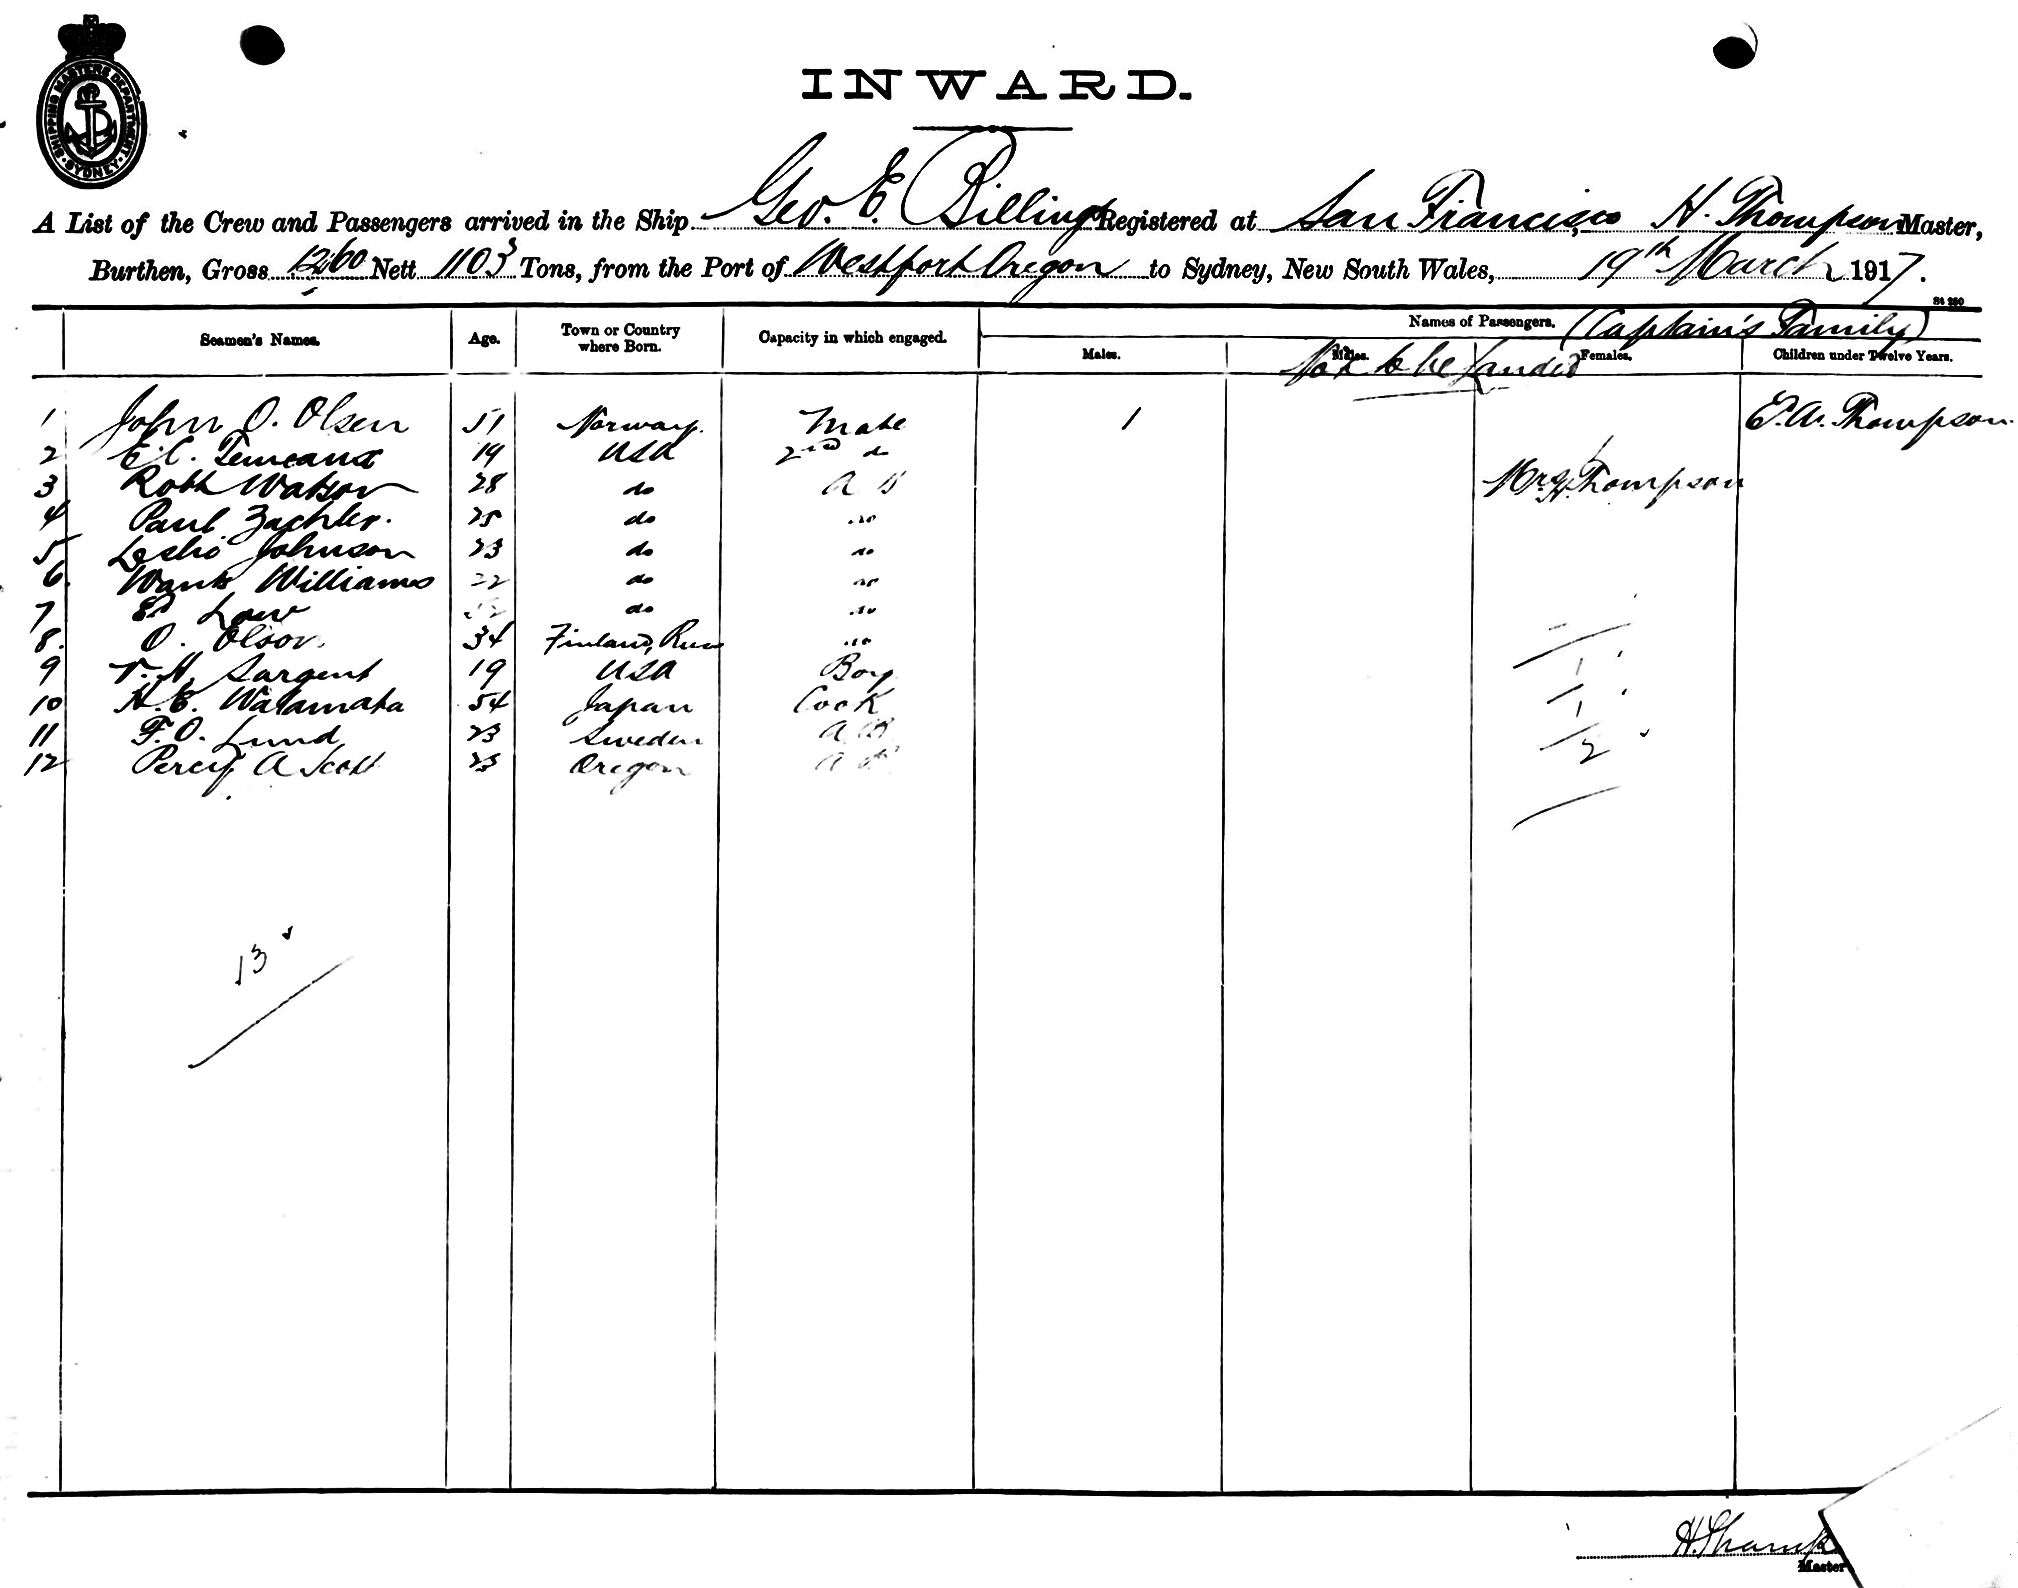 SHIPPING MASTERS DEPARTMENT · SYDNEY ·
INWARD.
A List of the Crew and Passengers arrived in the Ship Geo. E. Billings Registered at San Francisco, H. Thompson Master,
Burthen, Gross 1260 Nett 1103 Tons, from the Port of Westport Oregon to Sydney, New South Wales, 19th March 1917.
St 280
Seamen's Names. Age. Town or Country where Born. Capacity in which engaged. Names of Passengers. (Captain's Family)
Males. Males. Females. Children under Twelve Years.
Not to be Landed
1 John O. Olsen 51 Norway. Mate 1 E. W. Thompson.
2 E. C. 19 USA 2nd do
3 Robt Watson 28 do A B Mrs H. Thompson
4 Paul Zachler. 25 do do
5 Leslie Johnson 23 do do
6. Williams 22 do do
7 Ed Law do do
8. O. Olson. 34 Finland, Russ do
9 Sargent 19 USA Boy
10 H. E. Watamata 54 Japan Cook
11 F. O. Lund 23 Sweden A B
12 Percy A Scott 23 Oregon A B
1
1
2
13
H. Thomp
Master